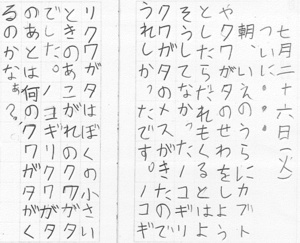 七月二十六日(火)
ついに・・・
朝、いえのうらにカブト
やクワガタのせわをしよう
としたらだれもくるとはよ
そうしてなかったノコギリ
クワガタのメスがきたので
うれしかったです。ノコギ
リクワガタはぼくの小さい
ときのあこがれのクワガタ
でした。ノコギリクワガタ
のあとは何のクワガタがく
るのかなぁ?。